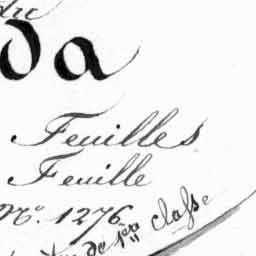 da
Feuilles
Feuille
No. 1276
de 1ère classe